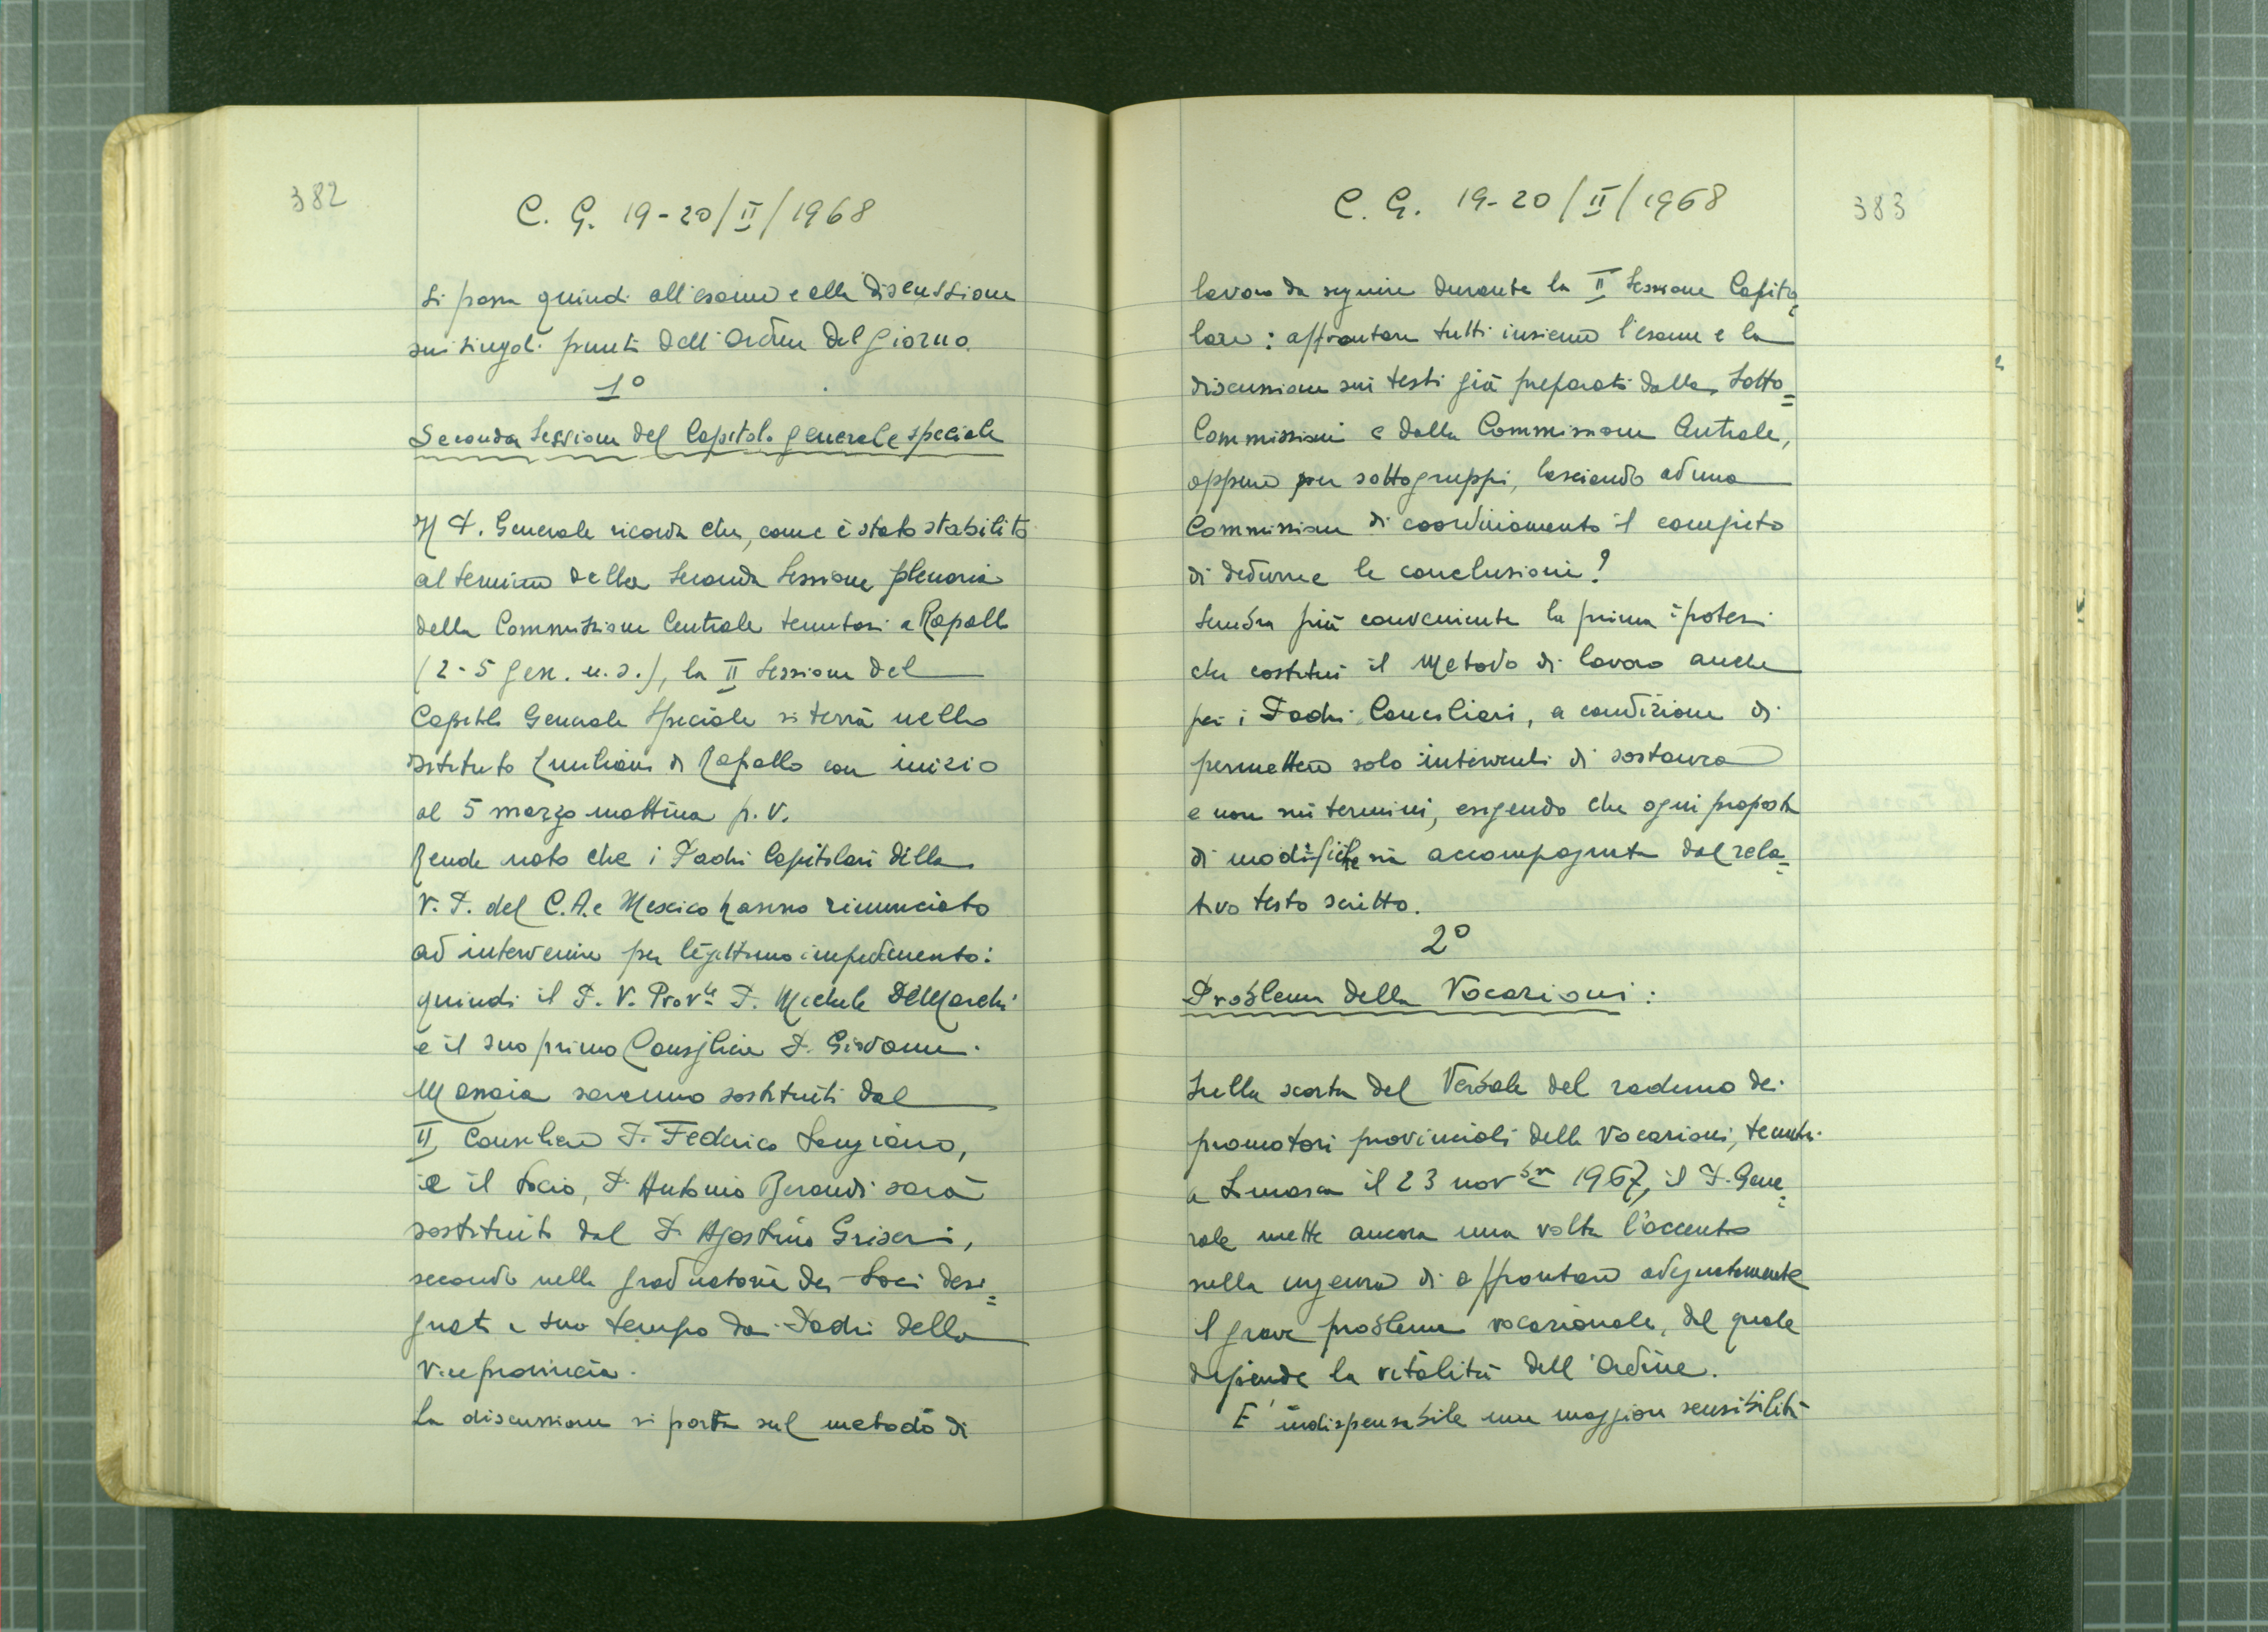 382
C. G. 19-20/II/1968
Si passa quindi all'esame e alla discussione
sui singoli punti dell'Ordine del Giorno.
1°
Seconda Sessione del Capitolo generale speciale
Il P. Generale ricorda che, come è stato stabilito
al termine della seconda Sessione plenaria
della Commissione Centrale tenutasi a Rapallo
(2-5 gen. u.s.), la II Sessione del
Capitolo Generale Speciale si terrà nello
Istituto Emiliani di Rapallo con inizio
al 5 marzo mattina p.v.
Rende noto che i Padri Capitolari della
V. P. del C.A. e Mexico hanno rinunciato
ad intervenire per legittimo impedimento:
quindi il P. V. Prov.le P. Michele De Marchi
e il suo primo Consigliere P. Giovanni
saranno sostituiti dal
II Consigliere P. Federico Sangiano,
e il Socio, P. Antonio Berardi sarà
sostituito dal P. Agostino Griseri,
secondo nella graduatoria dei Soci desi=
gnati a suo tempo dai Padri della
Viceprovincia.
La discussione si porta sul metodo di
C. G. 19-20/II/1968
383
lavoro da seguire durante la II Sessione Capito=
lare: affrontare tutti insieme l'esame e la
discussione sui testi già preparati dalle Sotto=
Commissioni e dalla Commissione Centrale,
oppure per sottogruppi, lasciando ad una
Commissione di coordinamento il compito
di dedurne le conclusioni?
Sembra più conveniente la prima ipotesi
che costituì il metodo di lavoro anche
per i Padri Conciliari, a condizione di
permettere solo interventi di sostanza
e non sui termini, esigendo che ogni proposta
di modifiche sia accompagnata dal rela=
tivo testo scritto.
2°
Problema delle Vocazioni:
Sulla scorta del Verbale del raduno dei
promotori provinciali delle Vocazioni, tenuto
a Somasca il 23 nov.bre 1967, il P. Gene=
rale mette ancora una volta l'accento
sulla urgenza di affrontare adeguatamente
il grave problema vocazionale, dal quale
dipende la vitalità dell'Ordine.
E' indispensabile una maggiore sensibilità